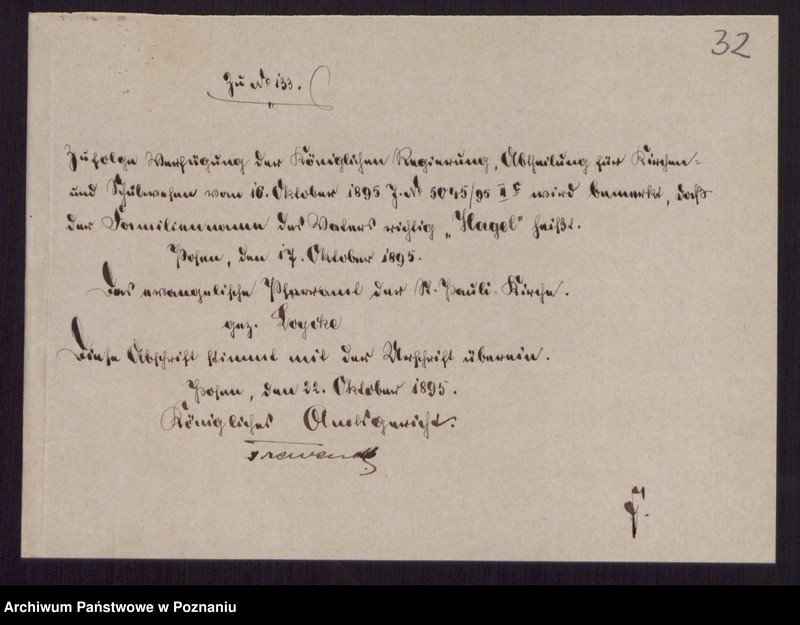 32
Zu No 133.
Zufolge Verfügung der Königlichen Regierung, Abtheilung für Kirchen-
und Schulwesen vom 16. Oktober 1895 J. No 5045/95 II c wird bemerkt, daß
der Familienname des Vaters richtig „Hagel" heißt.
Posen, den 17. Oktober 1895.
Das evangelische Pfarramt der St. Pauli-Kirche.
gez. Loycke
Diese Abschrift stimmt mit der Urschrift überein.
Posen, den 22. Oktober 1895.
Königliches Amtsgericht.
Archiwum Państwowe w Poznaniu